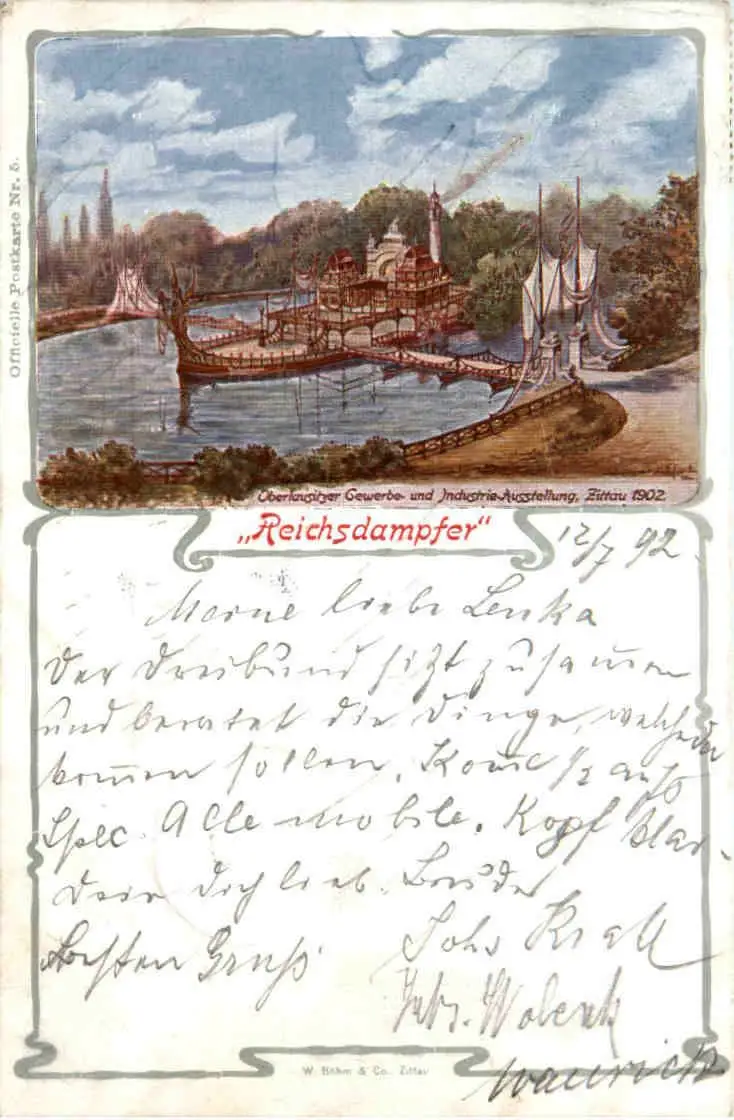 Officielle Postkarte Nr. 5.
Oberlausitzer Gewerbe- und Industrie-Ausstellung, Zittau 1902
„Reichsdampfer“
12/7 92.
Meine liebe Lenka
Der Dreibund sitzt zusammen
und beratet die Dinge, welche da
kommen sollen. Komme 1/2 auf
Alle mobile. Kopf klar.
Dein dich lieb. Bruder
Besten Gruß
Johs
W. Böhm & Co., Zittau